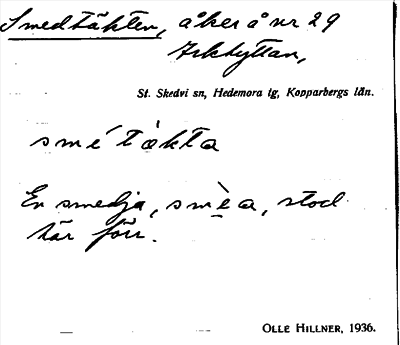 Smedtäkten, åker å nr 29
Arkhyttan,
St. Skedvi sn, Hedemora tg, Kopparbergs län.
smétàkta
En smedja, smèa, stod
här förr.
OLLE HILLNER, 1936.